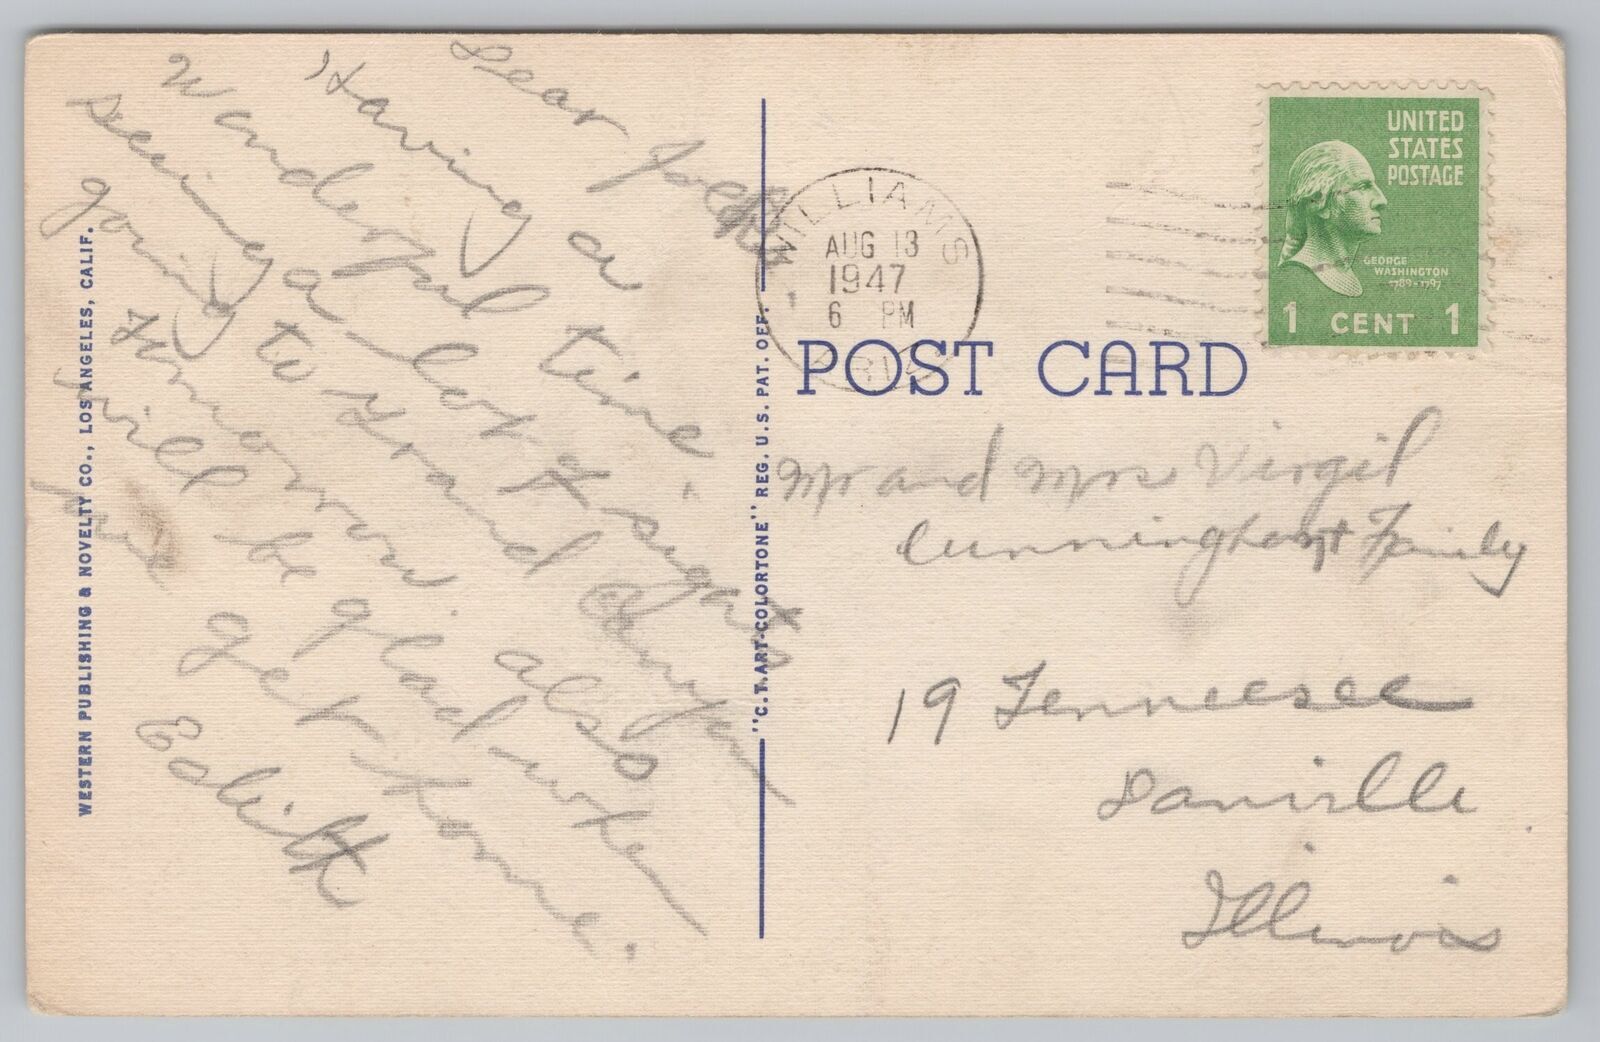 Dear folks
Having a
wonderful time
seeing a lot of sights
going to Grand Canyon
Tomorrow. also
will be glad when
we get home.
Edith
WESTERN PUBLISHING & NOVELTY CO., LOS ANGELES, CALIF.
"C.T. ART-COLORTONE" REG. U.S. PAT. OFF.
WILLIAMS
AUG 13
1947
6 PM
ARIZ.
UNITED
STATES
POSTAGE
GEORGE
WASHINGTON
1789-1797
1 CENT 1
POST CARD
Mr and Mrs Virgil
Cunningham + Family
19 Tennessee
Danville
Illinois